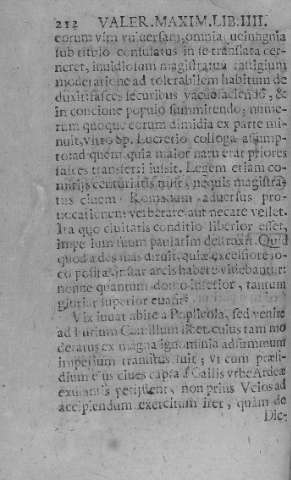 212 VALER. MAXIM. LIB. IIII.
eorum vim vniuersam, omnia
sub titulo consulatus in se translata cer-
neret, inuidiosum magistratus fastigium
moderatione ad tolerabilem habitum de
duxit: fasces securibus &
in concione populo summittendo; nume-
rum quoque eorum dimidia ex parte mi-
nuit, vltro Sp. Lucretio collega assump-
to: ad quem, quia maior natu erat priores
fasces transferri iussit. Legem etiam co-
mitijs centuriatis tulit, nequis magistra-
tus ciuem Romanum aduersus pro-
uocationem verberare aut necare vellet.
Ita quo ciuitatis conditio liberior esset,
imperium suum paulatim Quid
quod ædes suas diruit, quia excelsiore lo-
co positæ instar arcis habere videbantur:
nonne quantum domo inferior, tantum
gloria superior euasit?
Vix iuuat abire a Poplicola, sed venire
ad Furium Camillum libet, cuius tam mo
deratus ex magna ignominia ad summum
imperium transitus fuit; vt cum præsi-
dium eius ciues capta à Gallis vrbe Ardeæ
exulantis petijssent, non prius Veios ad
accipiendum exercitum iret, quàm de
Dic-